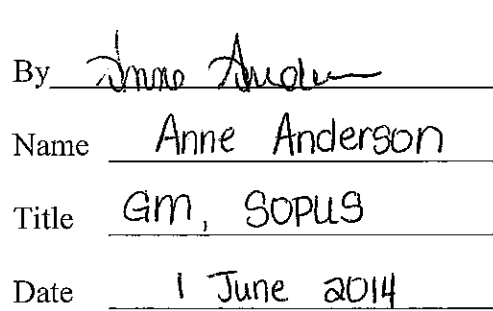 By Anne Anderson
Name Anne Anderson
Title GM, SOPUS
Date 1 June 2014